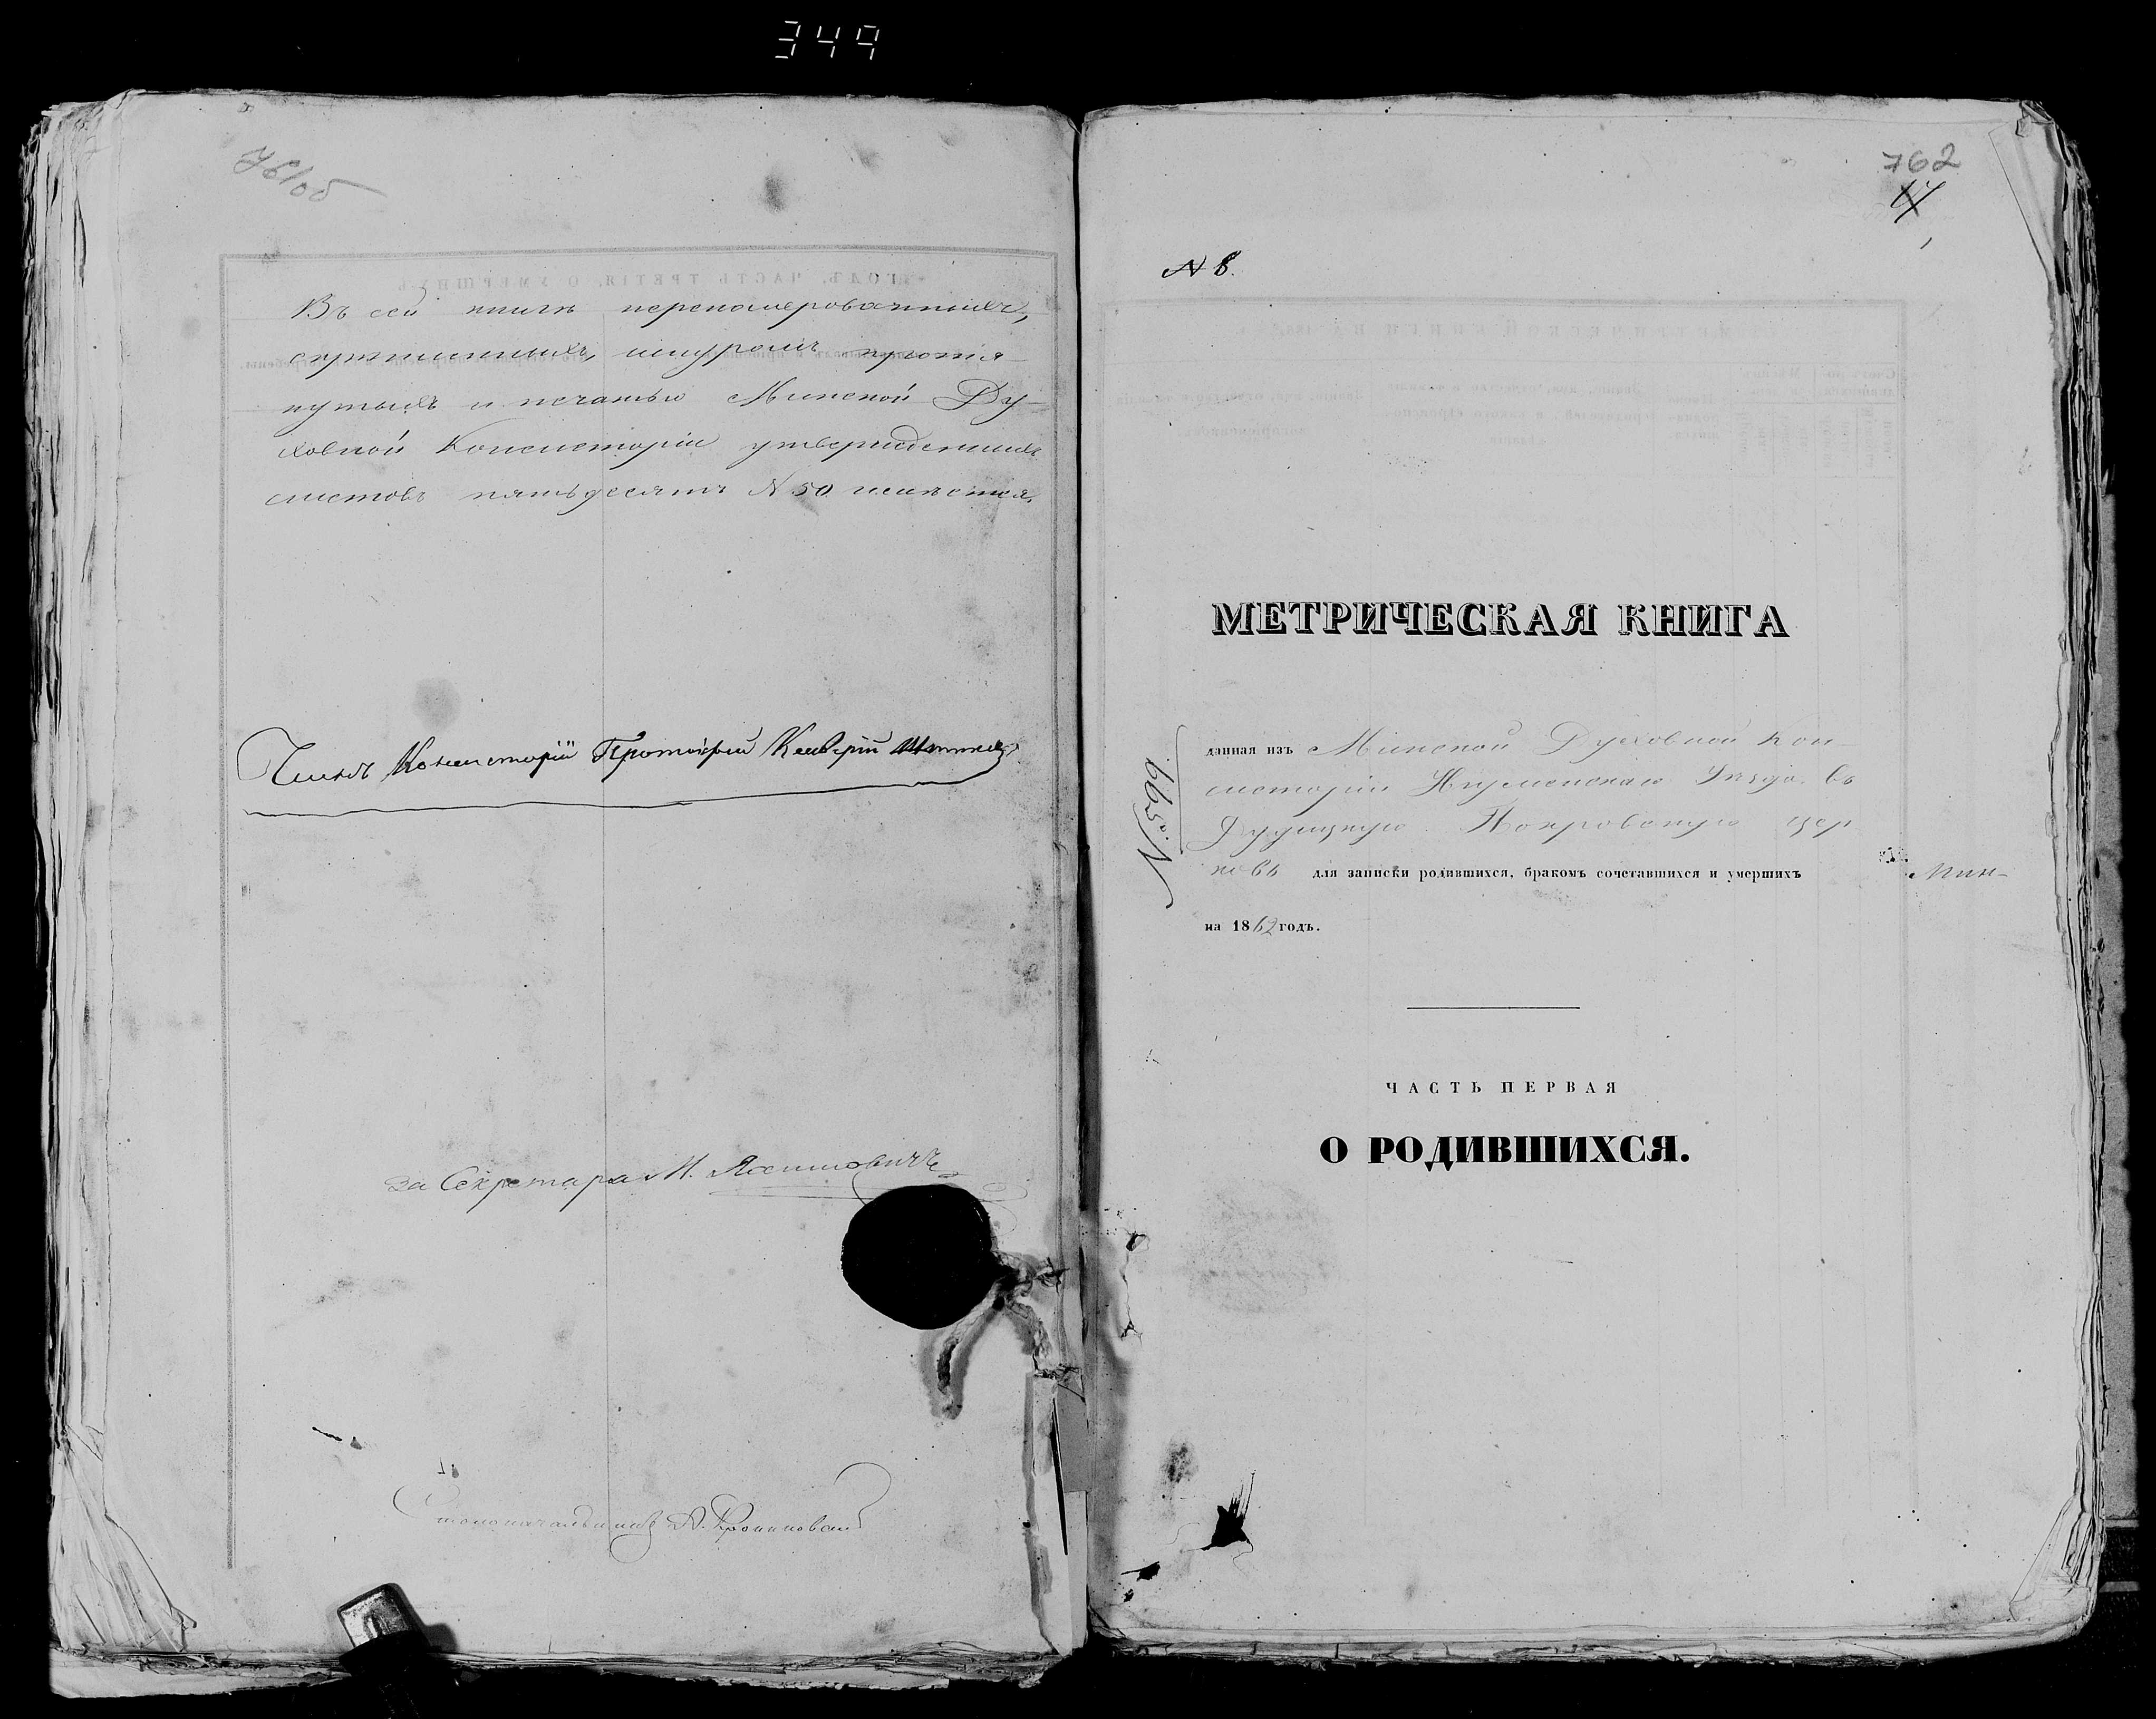 349
761об
Въ сей книгѣ переномерованныхъ,
скрѣпленныхъ, шнуромъ протя-
нутыхъ и печатью Минской Ду-
ховной Консисторіи утвержденныхъ
листовъ пятьдесятъ N 50 имѣется.
Членъ Консисторіи Протоіерей
За Секретаря И. Яхимовичъ
Столоначальникъ А.
762
N 8.
МЕТРИЧЕСКАЯ КНИГА
данная изъ Минской Духовной Кон-
систоріи Игуменскаго Уѣзда въ
Дудицкую Покровскую цер
ковь для записки родившихся, бракомъ сочетавшихся и умершихъ
Мин-
на 1862 годъ.
ЧАСТЬ ПЕРВАЯ
О РОДИВШИХСЯ.